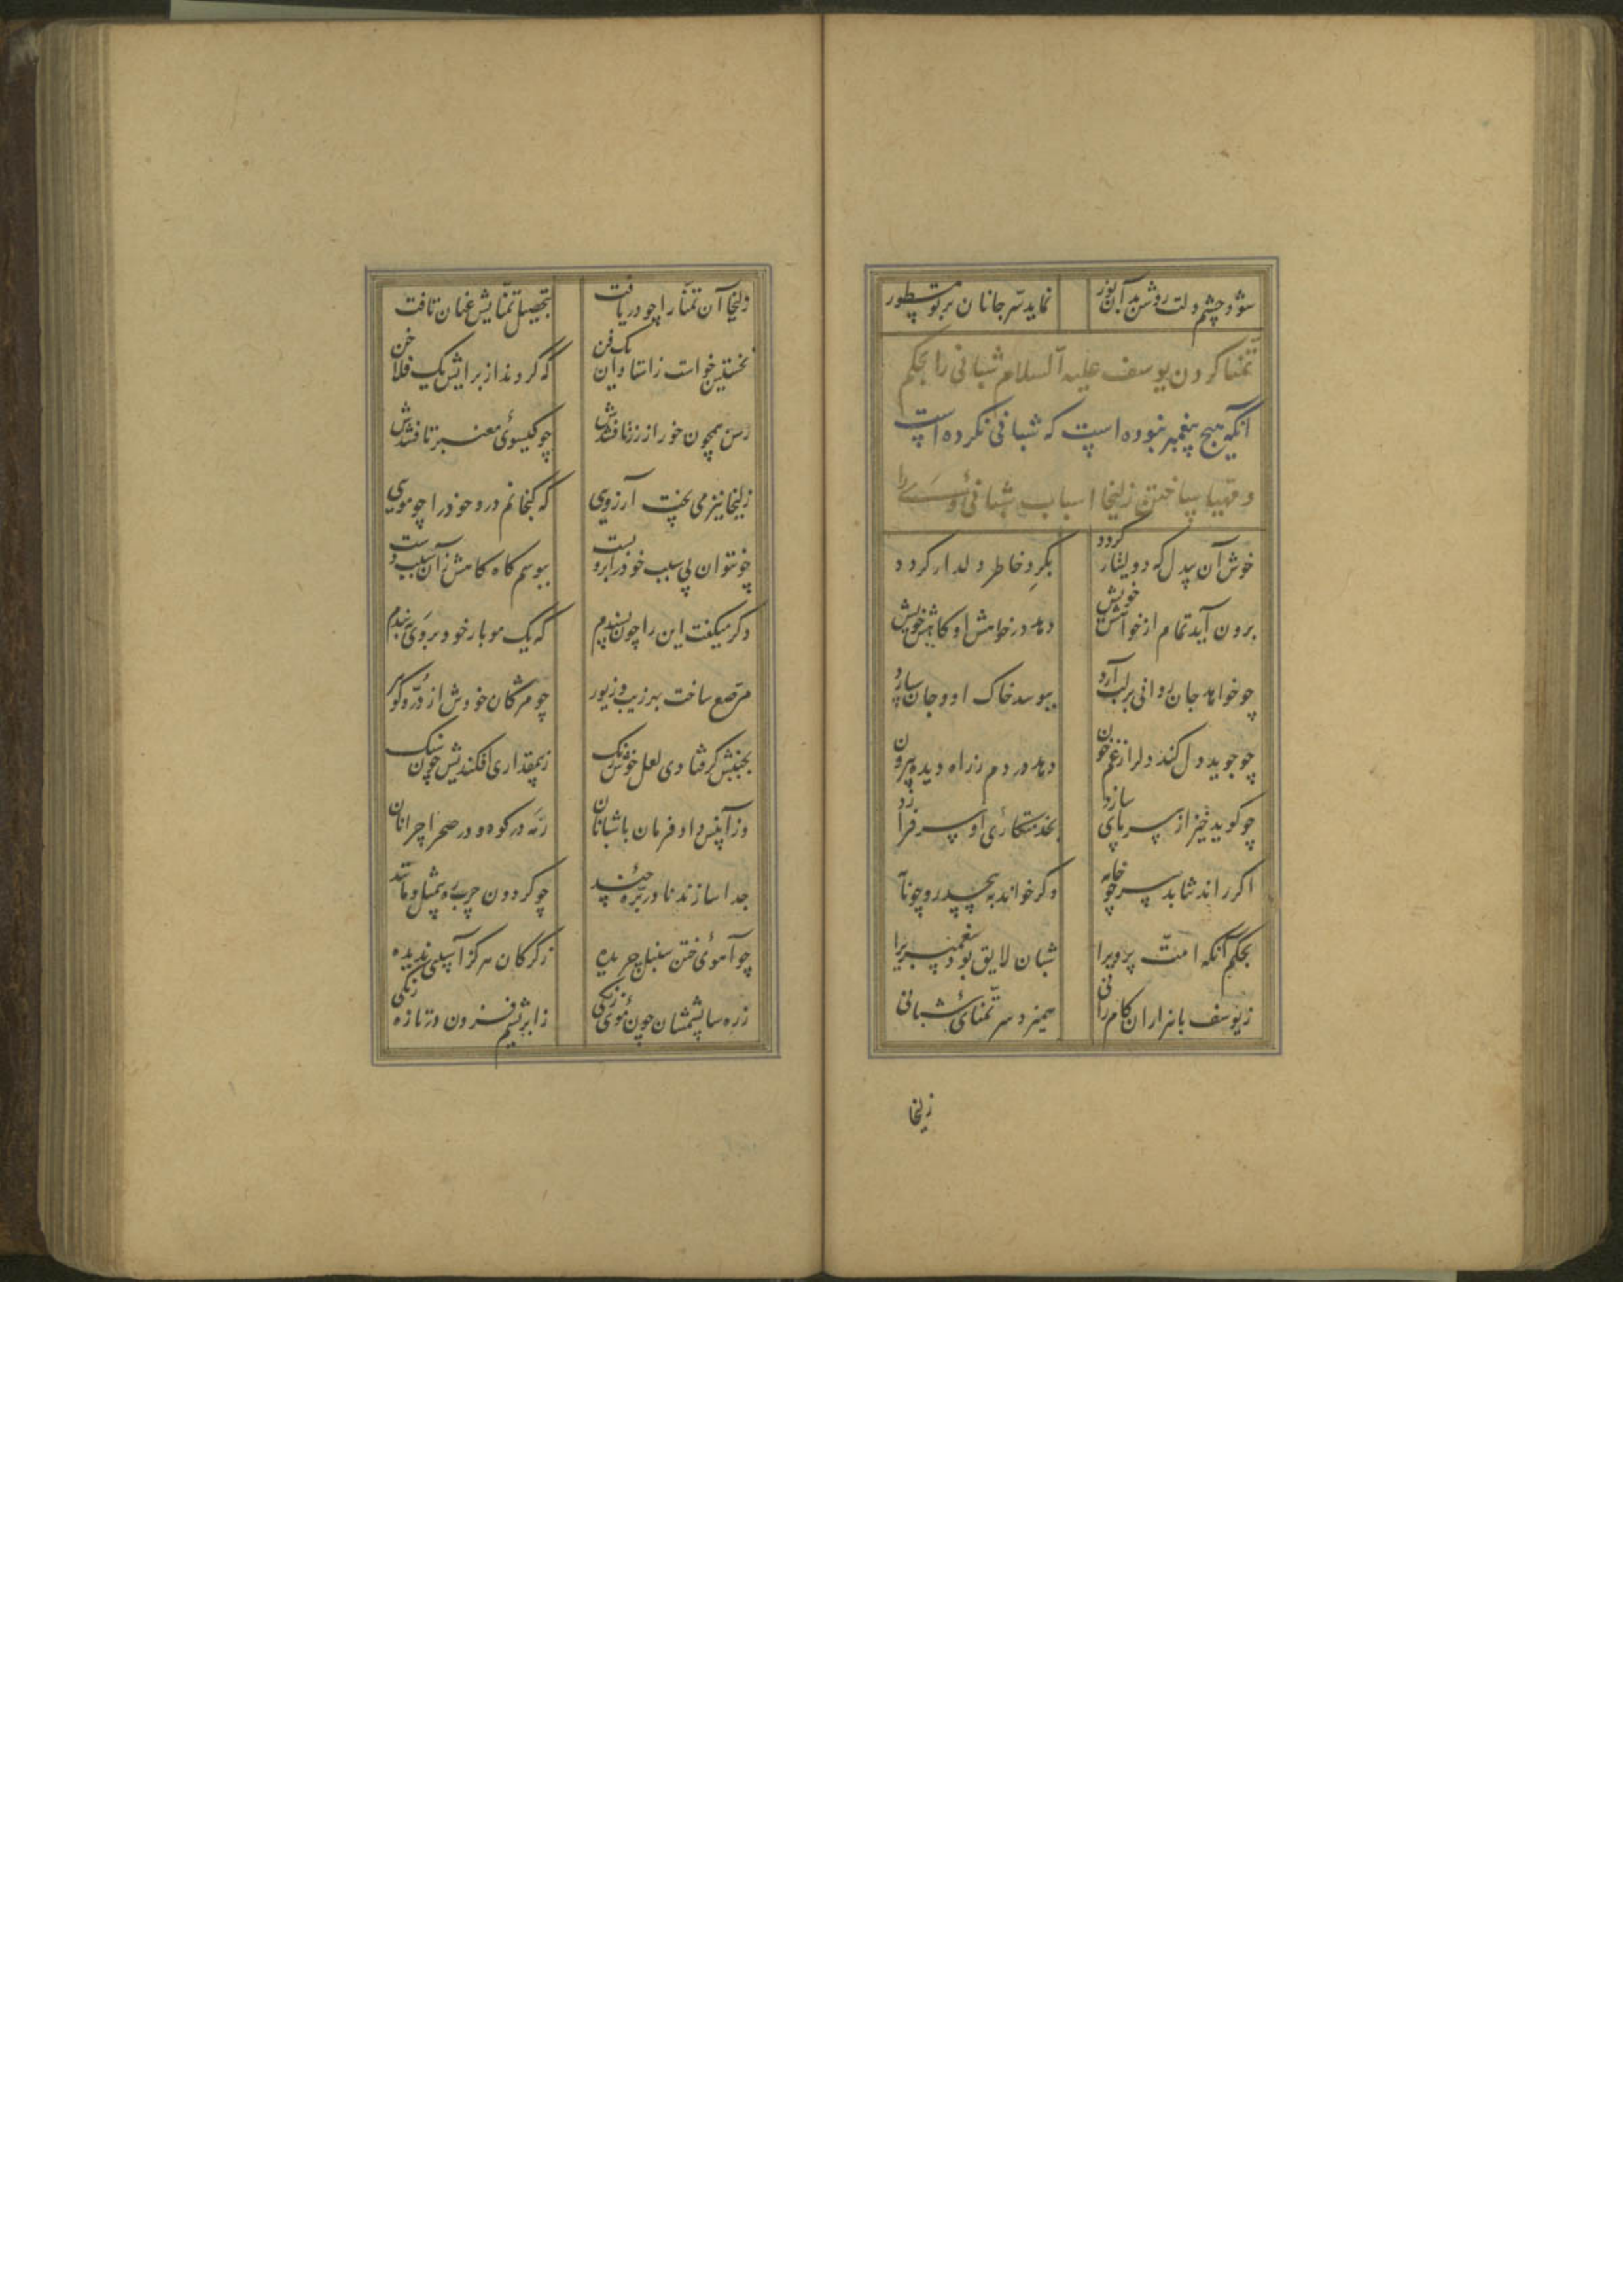 شود چشم دلت روشن بدان نور نماید سر جانان بر تو مستور
تمنا کردن یوسف علیه السلام شبانی را بحکم
آنکه هیچ پیغمبر نبوده است که شبانی نکرده است
و مهیا ساختن زلیخا اسباب شبانی وی را
خوش آن بیدل که دولتیار گردد بگرد خاطر دلدار گردد
برون آید تمام از خواهش خویش دهد در خواهش او کاهش خویش
چو خواهد جان روانی بر لب آرد ببوسد خاک او و جان سپارد
چو جوید دل کند دل را ز غم خون دهد در دم ز راه دیده بیرون
چو گوید خیز از سر پای سازد بخدمتکاری او سر فرازد
اگر راند شتابد سر چو خامه وگر خواند نه پیچد رو چو نامه
بحکم آنکه امت پرور یرا شبان لایق بود پیغمبریرا
ز یوسف با هزاران کامرانی همیزد سر تمنای شبانی
زلیخا
زلیخا آن تمنا را چو دریافت بتحصیل تمنایش عنان تافت
نخستین خواست زاستادان یک فن که کردند از برایش یک فلاخن
رسن همچون خور از زر تافتندش چو گیسوی معنبر بافتندش
زلیخا نیز می پخت آرزویی که گنجانم درو خود را چو مویی
چو نتوان بی سبب خود را برو بست ببوسم گاه گاهش زان سبب دست
دگر میگفت این را چون پسندم که یک مو بار خود بر وی به بندم
مرصع ساخت بهر زیب و زیور چو مژگان خودش از در و گوهر
بجنبش گر فتادی لعل خوش رنگ ز بیقداری افکندیش چون سنگ
وز آن پس داد فرمان با شبانان رمه در کوه و در صحرا چرانان
جدا سازند نادر بره چند چو گردون حمل بره بیمثل و مانند
چو آهوی ختن سنبل چریده ز گرگان هرگز آسیبی ندیده
زره سا پشمشان چون موی زنگی ز ابریشم فزون در تازه رنگی